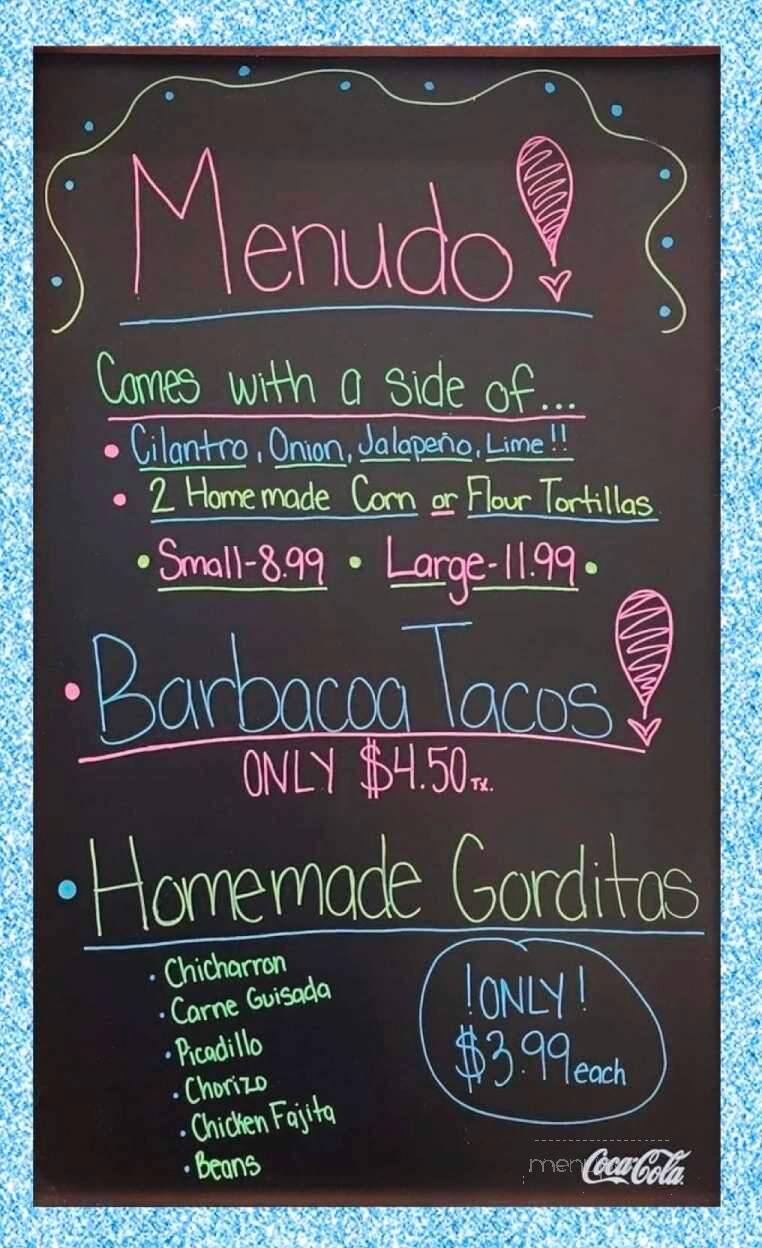 Menudo!
Comes with a side of...
• Cilantro, Onion, Jalapeño, Lime!!
• 2 Homemade Corn or Flour Tortillas
• Small-8.99 • Large-11.99 •
• Barbacoa Tacos!
ONLY $4.50 TX.
• Homemade Gorditas
• Chicharron
• Carne Guisada
• Picadillo
• Chorizo
• Chicken Fajita
• Beans
!ONLY!
$3.99 each
Coca-Cola